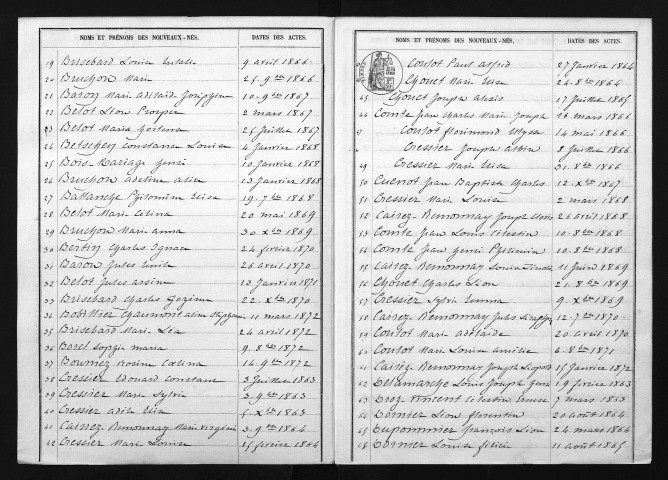 NOMS ET PRÉNOMS DES NOUVEAUX-NÉS. DATES DES ACTES.
19 Brisebard Louise 9 avril 1866
20 Bruchon Marie 25 - 9bre 1866
21 Baron Marie adélaïde Joséphine 10 - 9bre 1867
22 Belot Léon Prosper 2 mars 1867
23 Belot Maria 25 Juillet 1867
24 Betschey Constance Louise 4 Janvier 1868
25 Bois-Mariage henri 10 Janvier 1868
26 Bruchon adeline alix 13 Janvier 1868
27 Philomène 19 - 7bre 1868
28 Belot Marie Célina 20 mai 1869
29 Bruchon Marie anna 30 Xbre 1869
30 Bertin Charles Ignace 24 février 1870
31 Baron Jules Emile 26 avril 1870
32 Belot Jules arsène 13 Janvier 1871
33 Brisebard Charles 22 - Xbre 1870
34 Chaumont 11 mars 1872
35 Brisebard Marie Léa 24 avril 1872
36 Borel Sophie maria 9 - 8bre 1872
37 Bournez Rosine 14 - 9bre 1872
38 Cressier Edouard Constant 3 Juillet 1863
39 Cressier Marie Sylvie 3 - 9bre 1863
40 Cressier adèle 5 - Xbre 1863
41 Cairrez Bemonnay Marie virginie 3 - 9bre 1864
42 Cressier Marie Louise 25 février 1864
NOMS ET PRÉNOMS DES NOUVEAUX-NÉS. DATES DES ACTES.
Coulot Paul alfred 27 Janvier 1864
Chouet Marie 24 - 8bre 1864
45 Chouet Joseph alexis 17 Juillet 1865
46 Comte Jean Charles Marie Joseph 26 mars 1866
47 Coulot florimond Ulysse 14 mai 1866
Cressier Joseph albin 8 Juillet 1866
49 Cressier Marie 31 - 8bre 1866
50 Cuenot Jean Baptiste Charles 12 - Xbre 1867
51 Cressier Marie Louise 2 mars 1868
52 Cairrez Bemonnay Joseph 26 avril 1868
53 Comte Jean Louis Célestin 10 - 8bre 1868
54 Comte Jean henri 10 - 8bre 1868
55 Cairrez Bemonnay Louise 11 Juin 1869
56 Chouet Charles Léon 21 - 8bre 1869
57 Cressier Sylvie Emma 9 - Xbre 1869
58 Cairrez Bemonnay Jules 12 - 7bre 1870
59 Coulot Marie adélaïde 20 avril 1870
60 Coulot Marie Louise amélie 6 - 8bre 1871
61 Cairrez Bemonnay Joseph Léopold 15 Janvier 1872
62 Delamarche Louis Joseph 19 février 1863
63 Droz vincent Célestin 7 mars 1863
64 Dornier Léon florentin 20 août 1864
65 Dupommier françois Léon 24 mars 1864
66 Dornier Louise félicie 11 août 1865